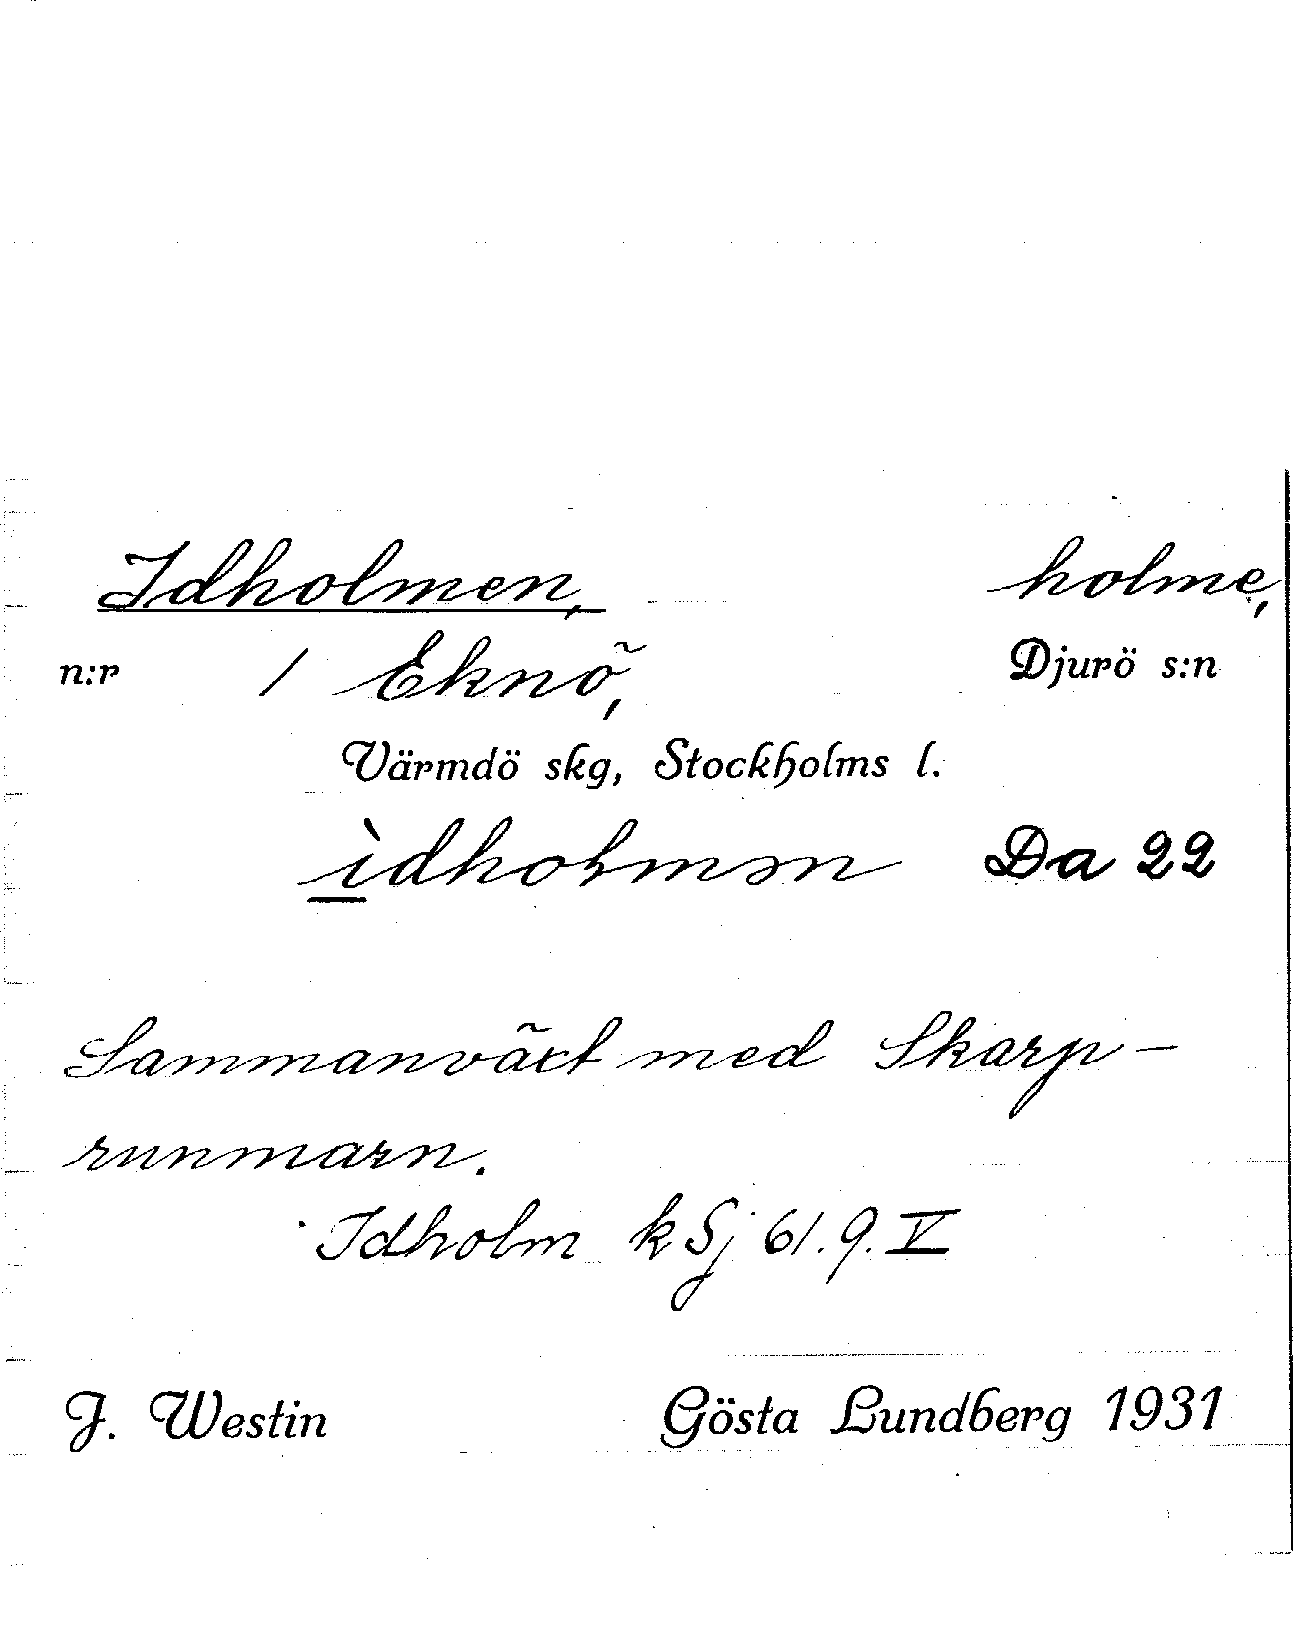 Idholmen, holme,
n:r 1 Eknö, Djurö s:n
Värmdö skg, Stockholms l.
ìdholmən Da 22
Sammanväxt med Skarp-
runmarn.
Idholm k Sj 61.9.V
J. Westin Gösta Lundberg 1931